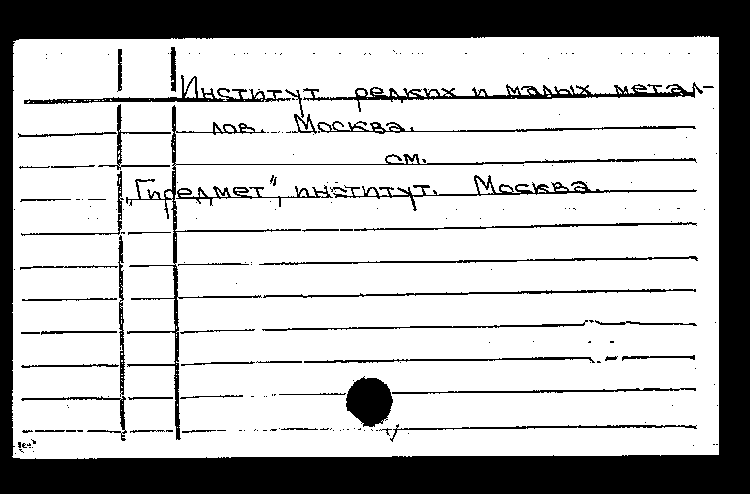 Институт редких и малых метал-
лов. Москва.
см.
„Гиредмет", институт. Москва.